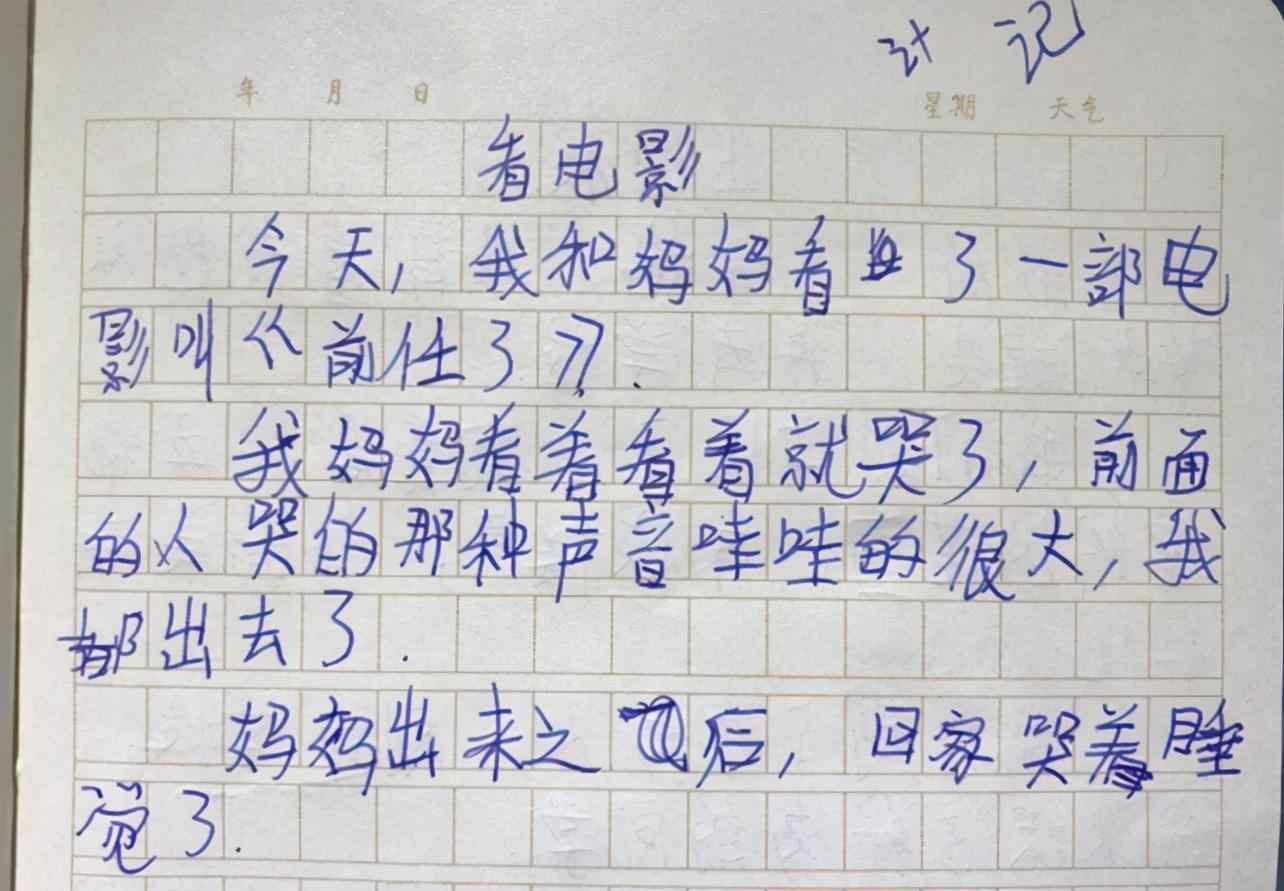 计 记
年 月 日 星期 天气
看电影
今天，我和妈妈看了一部电
影叫《前任3》.
我妈妈看着看着就哭了，前面
的人哭的那种声音哇哇的很大，我
都出去了.
妈妈出来之后，回家哭着睡
觉了.